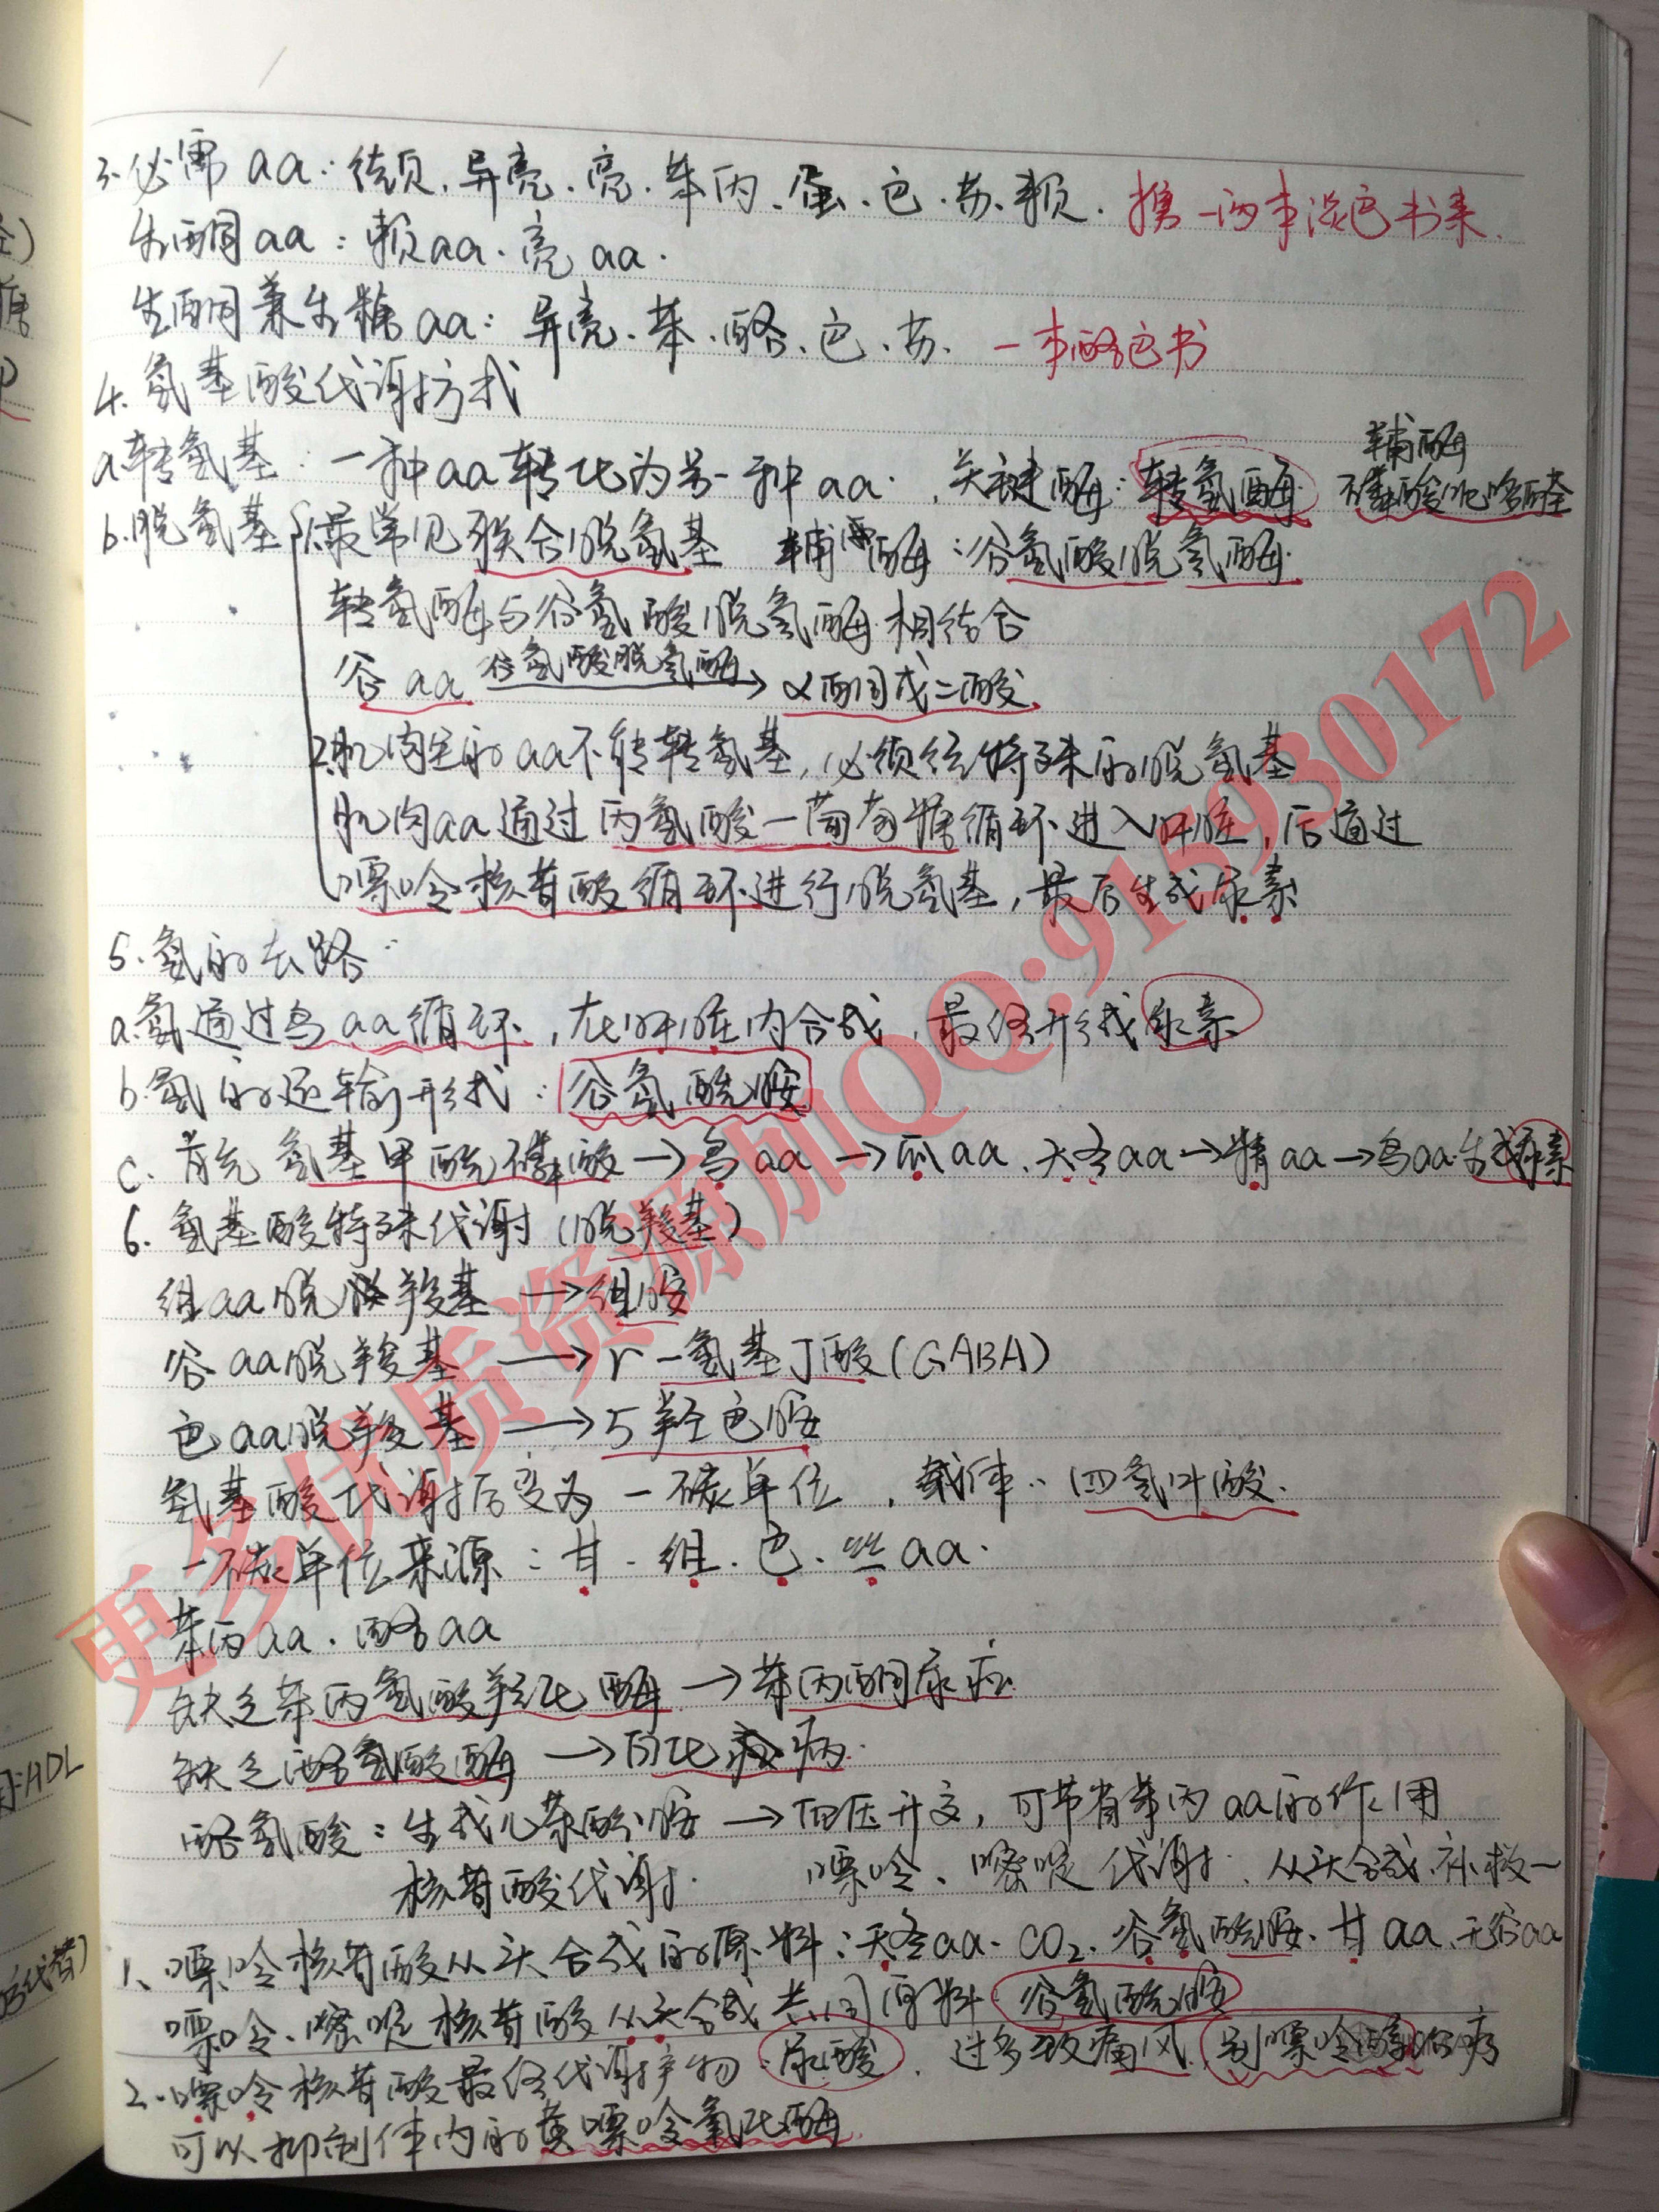 3.必需aa:缬、异亮、亮、苯丙、蛋、色、苏、赖. 携一两本淡色书来.
生酮aa:赖aa、亮aa.
生酮兼生糖aa:异亮、苯、酪、色、苏、一本酪色书
4.氨基酸代谢方式
a.转氨基:一种aa转化为另一种aa.,关键酶:转氨酶. 辅酶 磷酸吡哆醛
b.脱氨基 1.最常见联合脱氨基 辅酶:谷氨酸脱氢酶.
转氨酶与谷氨酸脱氢酶相结合
谷aa 谷氨酸脱氢酶→α酮戊二酸
2.肌肉里的aa不能转氨基,必须经特殊的脱氨基
肌肉aa通过丙氨酸-葡萄糖循环进入肝脏,后通过
嘌呤核苷酸循环进行脱氨基,最后生成尿素
5.氨的去路
a.氨通过鸟aa循环,在肝脏内合成,最终形成尿素
b.氨的运输形式:谷氨酰胺
c.首先氨基甲酰磷酸→鸟aa→瓜aa、天冬aa→精aa→鸟aa生成尿素
6.氨基酸特殊代谢(脱羧基)
组aa脱羧基→组胺
谷aa脱羧基→r-氨基丁酸(GABA)
色aa脱羧基→5羟色胺
氨基酸代谢后变为一碳单位,载体:四氢叶酸.
一碳单位来源:甘、组、色、丝aa.
苯丙aa、酪aa
缺乏苯丙氨酸羟化酶→苯丙酮尿症
缺乏酪氨酸酶→白化病.
酪氨酸:生成儿茶酚胺→血压升高,可节省苯丙aa的作用
核苷酸代谢. 嘌呤、嘧啶代谢:从头合成、补救一
1、嘌呤核苷酸从头合成的原料:天冬aa、CO2、谷氨酰胺、甘aa、无谷aa
嘌呤、嘧啶核苷酸从头合成共同原料 谷氨酰胺
2.嘌呤核苷酸最终代谢产物:尿酸、过多致痛风、别嘌呤醇治疗
可以抑制体内的黄嘌呤氧化酶
:HDL
更多优质资源加QQ:915930172